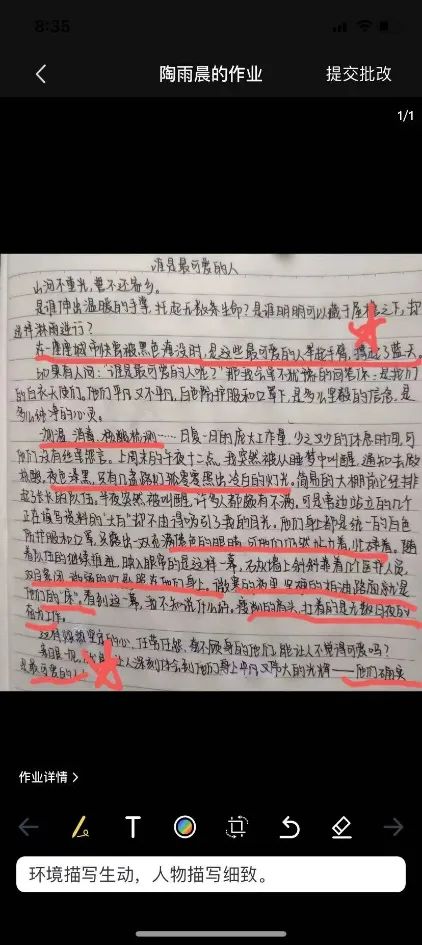 8:35
陶雨晨的作业
提交批改
1/1
谁是最可爱的人
山河不重光,誓不还家乡。
是谁伸出温暖的手掌,托起无数条生命?是谁明明可以藏于屋檐之下,却
选择淋雨逆行?
在一座座城市快要被黑色淹没时,是这些最可爱的人举起手臂,撑起了蓝天。
如果有人问:“谁是最可爱的人呢?”那我会毫不犹豫的回答你:是我们
的白衣天使们。他们平凡又不平凡,白色防护服和口罩下,是多么坚毅的信念,是
多么纯净的心灵。
测温,消毒,核酸检测……日复一日的庞大工作量,少之又少的休息时间,可
他们没有丝毫怨言。上周末的午夜十二点,我突然被从睡梦中叫醒,通知去做
核酸。夜色漆黑,只有几盏路灯孤零零照出冷白的灯光。简易的大棚前已经排
起了长长的队伍。半夜突然被叫醒,许多人都颇有不满。可是旁边站立的几个
正在填写资料的“大白”却不由得吸引了我的目光。他们身上都是统一的白色
防护服和口罩,只露出一双布满倦色的眼睛,可他们仍然忙立着,忙碌着。随
着队伍的继续推进,映入眼帘的是这样一幕:石灰墙上斜斜靠着几个医护人员,
双目紧闭,
他们的“床”。看到这一幕,我不知说什么好。
奋力工作。
们,能让人不觉得可爱吗?
让人深刻体会到他们身上平凡又伟大的光辉——他们确实
是最可爱的人!
作业详情 >
T
环境描写生动,人物描写细致。